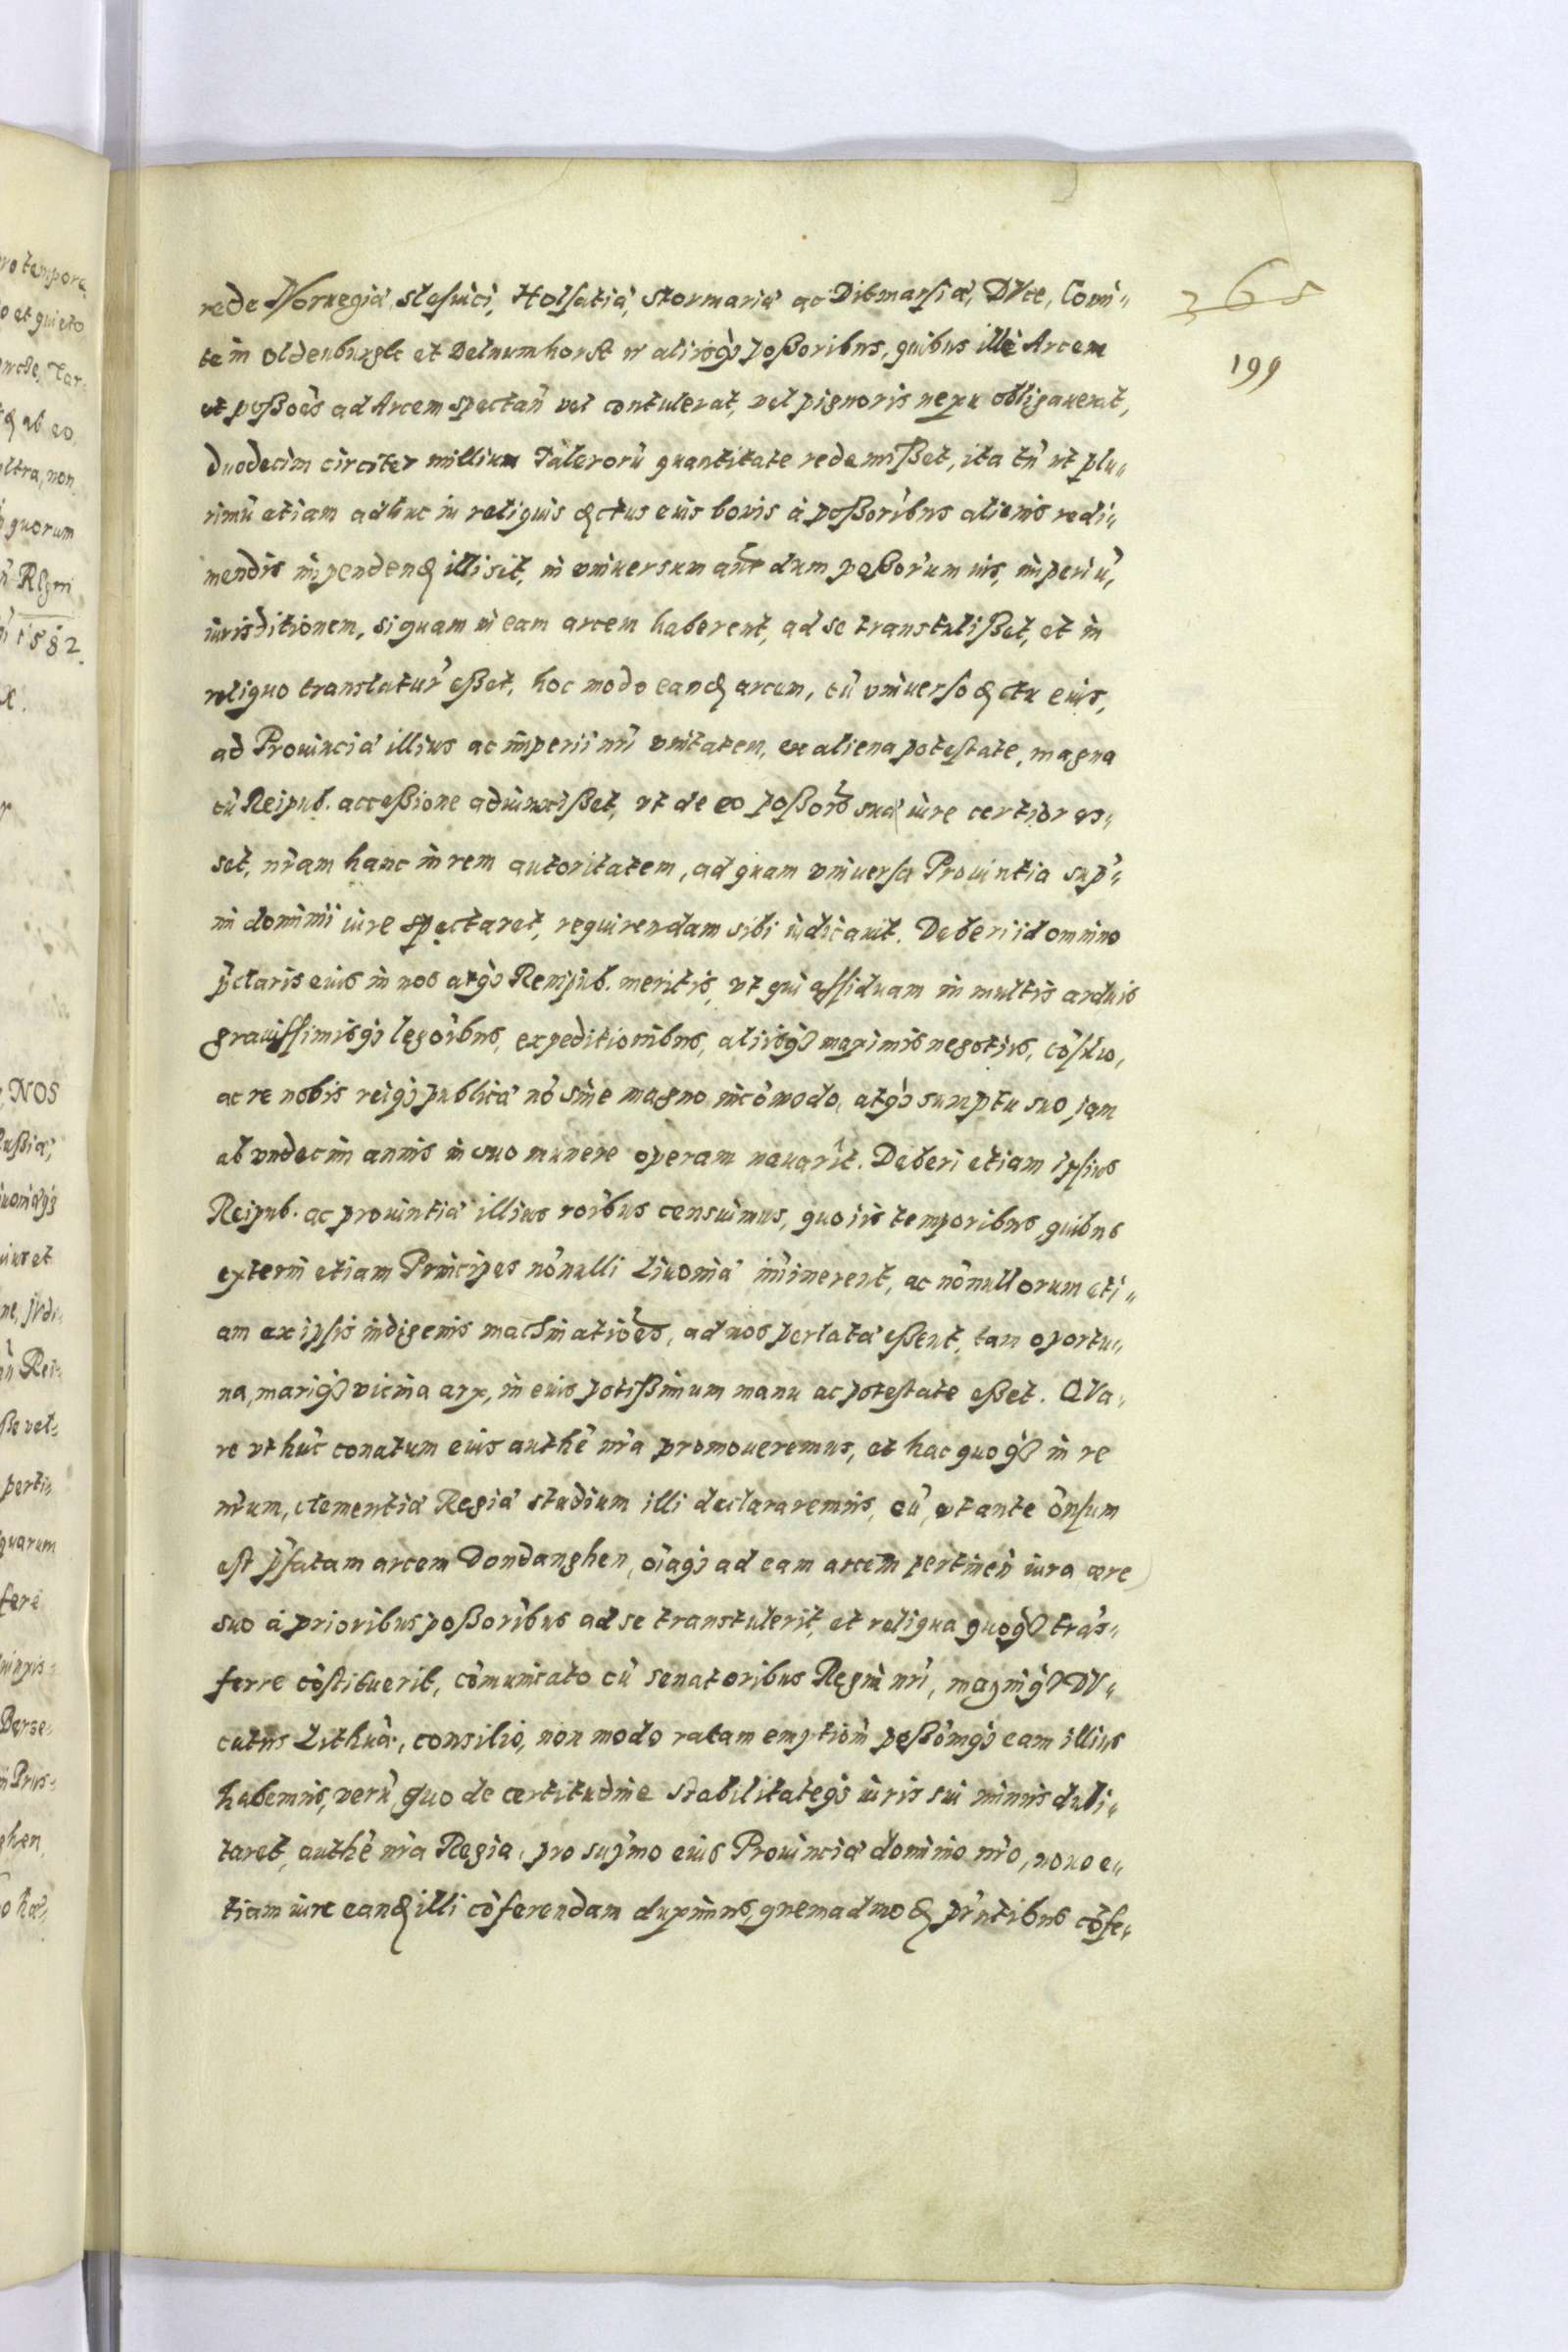 rede Noruegiæ, slesuici, Holsatiæ, stormariæ ac Ditmarsiæ, DVce, Comi„
te in oldenburgk et Delmenhorst n̄ aliisq; possoribus, quibus ille Arcem
et possoēs ad Arcem spectan̄ vel contulerat, vel pignoris nexu obligauerat,
duodecim circiter millium Talerorū quantitate redemisset, ita tn̄ ut plu„
rimū etiam adhuc in reliquis ꝗctus eius bonis à possoribus alienis redi„
mendis impendenꝗ illi sit, in vniuersum aūt dum possorum ius, imperiū,
iurisditionem, si quam in eam arcem haberent, ad se transtulisset, et in
reliquo translatur' esset, hoc modo eanꝗ arcem, cū vniuerso ꝗctu eius,
ad Prouinciæ illius ac imperii nr̄i vnitatem, ex aliena potestate, magna
cū Reipub. accessione adiunxisset, vt de eo possoīs suæ iure certior es„
set, nr̄am hanc in rem autoritatem, ad quam vniuersa Prouintia sup'„
mi dominii iure spectaret, requirendam sibi iudicauit. Deberi id omnino
p̄claris eius in nos atq; Rempub. meritis, vt qui assiduam in multis arduis
grauissimisq; legōibus, expeditionibus, aliisq; maximis negotiis, cōsilio,
ac re nobis reiq; publicæ nō sine magno incōmodo, atq; sumptu suo jam
ab vndecim annis in suo munere operam nauarit. Deberi etiam ipsius
Reipub. ac prouintiæ illius rōibus censuimus, quo iis temporibus quibus
externi etiam Principes nōnulli Liuoniæ im̄inerent, ac nōnullorum eti„
am ex ipsis indigenis machinatiōes, ad nos perlatæ essent, tam oportu„
na, mariq; vicina arx, in eius potissimum manu ac potestate esset. QVa„
re vt huc̄ conatum eius authē nr̄a promoueremus, et hac quoq; in re
nr̄um, clementiæ Regiæ studium illi declararemus, cū, vt ante ōnsum
est p̄fatam arcem Dondanghen, oīaq; ad eam arcem pertinen̄ iura ære
suo à prioribus possoribus ad se transtulerit, et reliqua quoq; trās„
ferre cōstituerit, cōmunicato cū senatoribus Regni nr̄i, magniq; DV„
catus Lithuā., consilio, non modo ratam emptiōm possōmq; eam illius
habemus, verū, quo de certitudine stabilitateq; iuris sui minus dubi„
taret, authē nr̄a Regia, pro sup̄mo eius Prouinciæ dominio nr̄o, nouo e„
tiam iure eanꝗ illi cōferendam duximus, quemadmoꝗ pr̄ntibus cōfe„
365
199